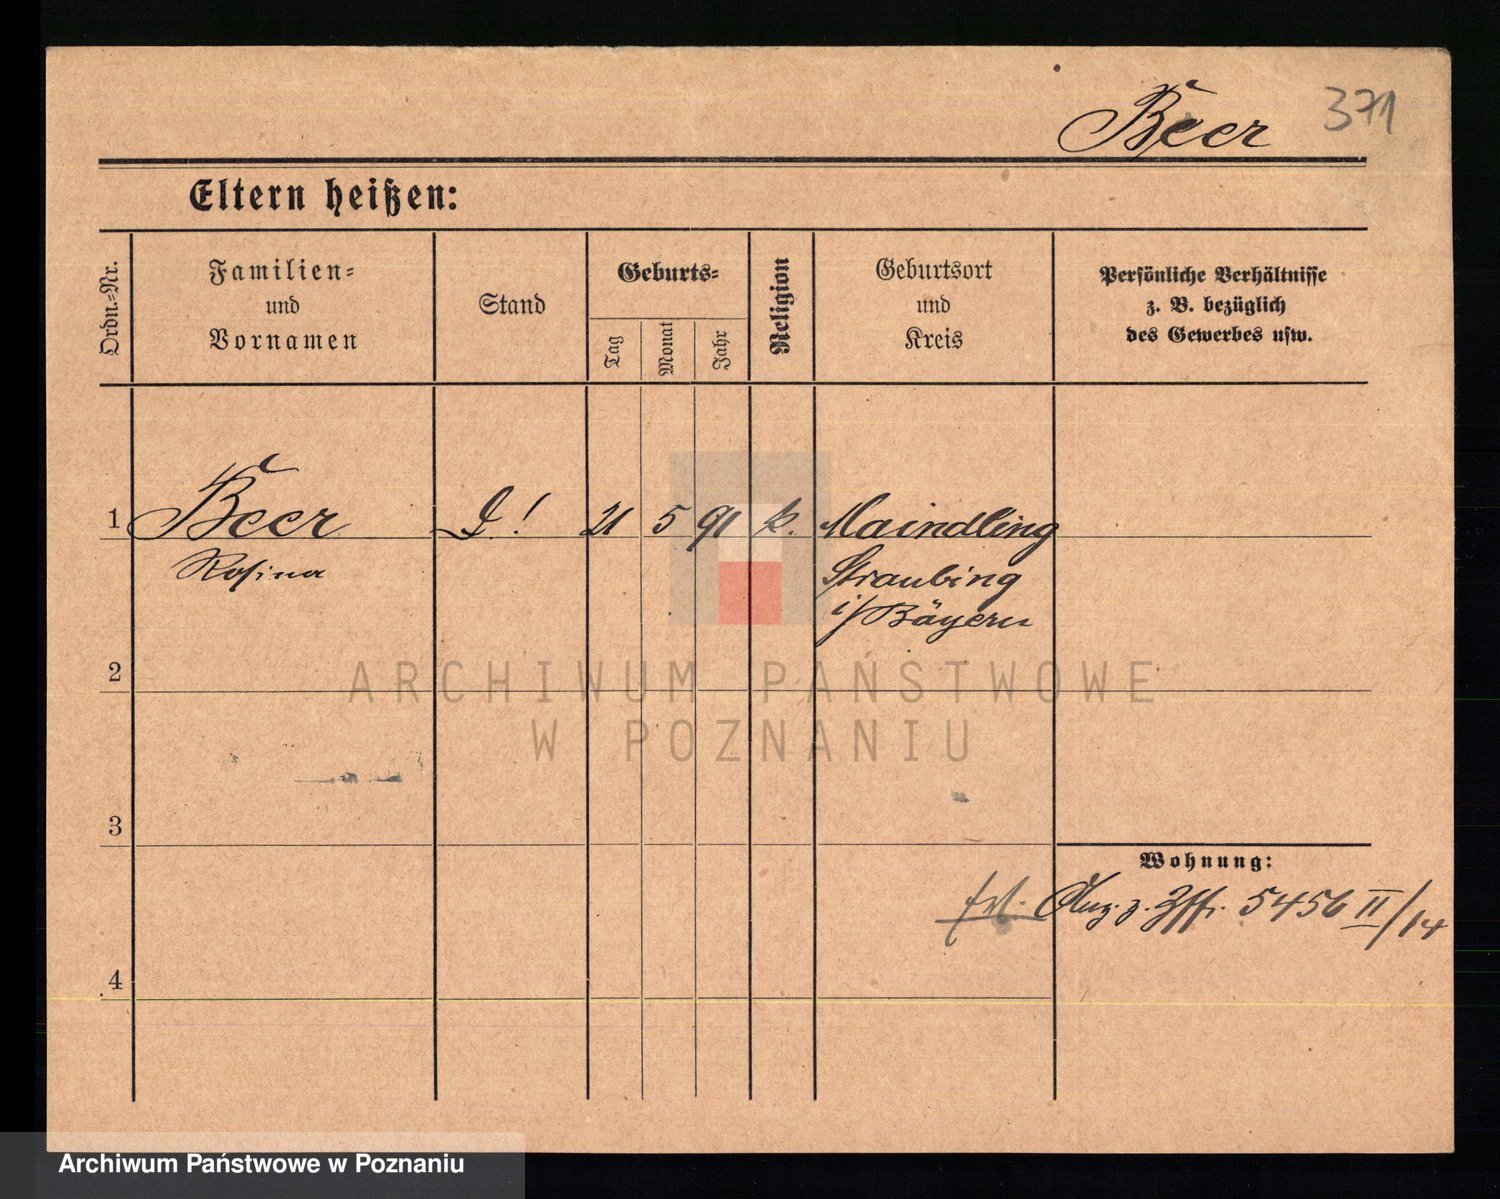 Beer 371
Eltern heißen:
Ordn.-Nr.
Familien-
und
Vornamen
Stand
Geburts-
Tag
Monat
Jahr
Religion
Geburtsort
und
Kreis
Persönliche Verhältnisse
z. B. bezüglich
des Gewerbes usw.
1 Beer ! 21 5 91 k. Maindling
Rosina Straubing
i/Bayern
2
ARCHIWUM PAŃSTWOWE
W POZNANIU
3
Wohnung:
z. 5456 II/14
4
Archiwum Państwowe w Poznaniu